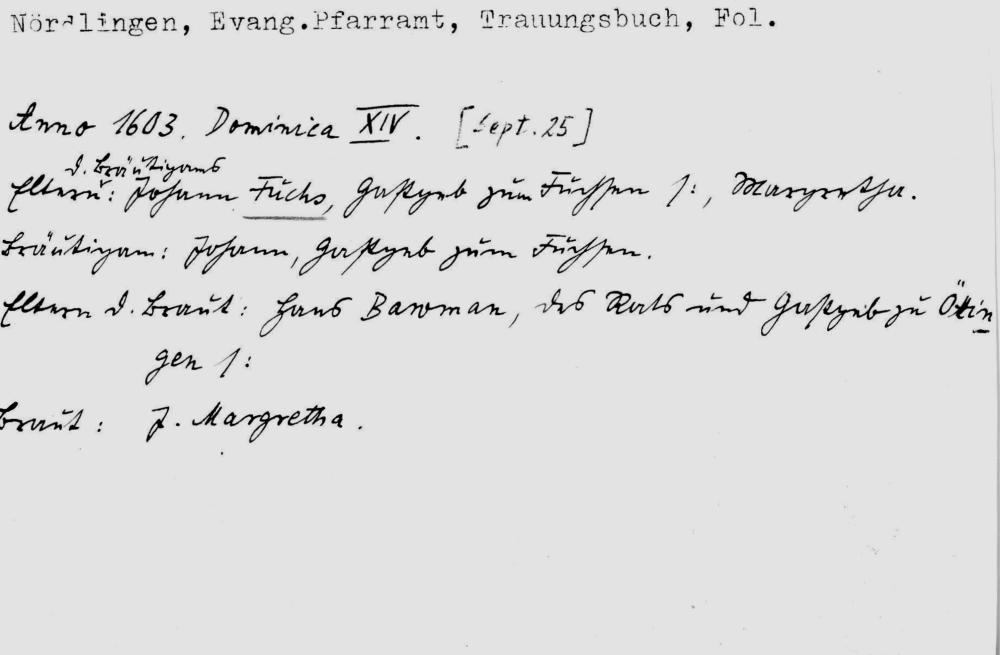 Nördlingen, Evang.Pfarramt, Trauungsbuch, Fol.
Anno 1603. Dominica XIV. [Sept. 25]
d. Bräutigams
Eltern: Johann Fuchs, Gastgeb zum Fuchsen /:, Margretha.
Bräutigam: Johann, Gastgeb zum Fuchsen.
Eltern d. Braut: Hans Bawman, des Rats und Gastgeb zu Ötin
gen /:
Braut: J. Margretha.